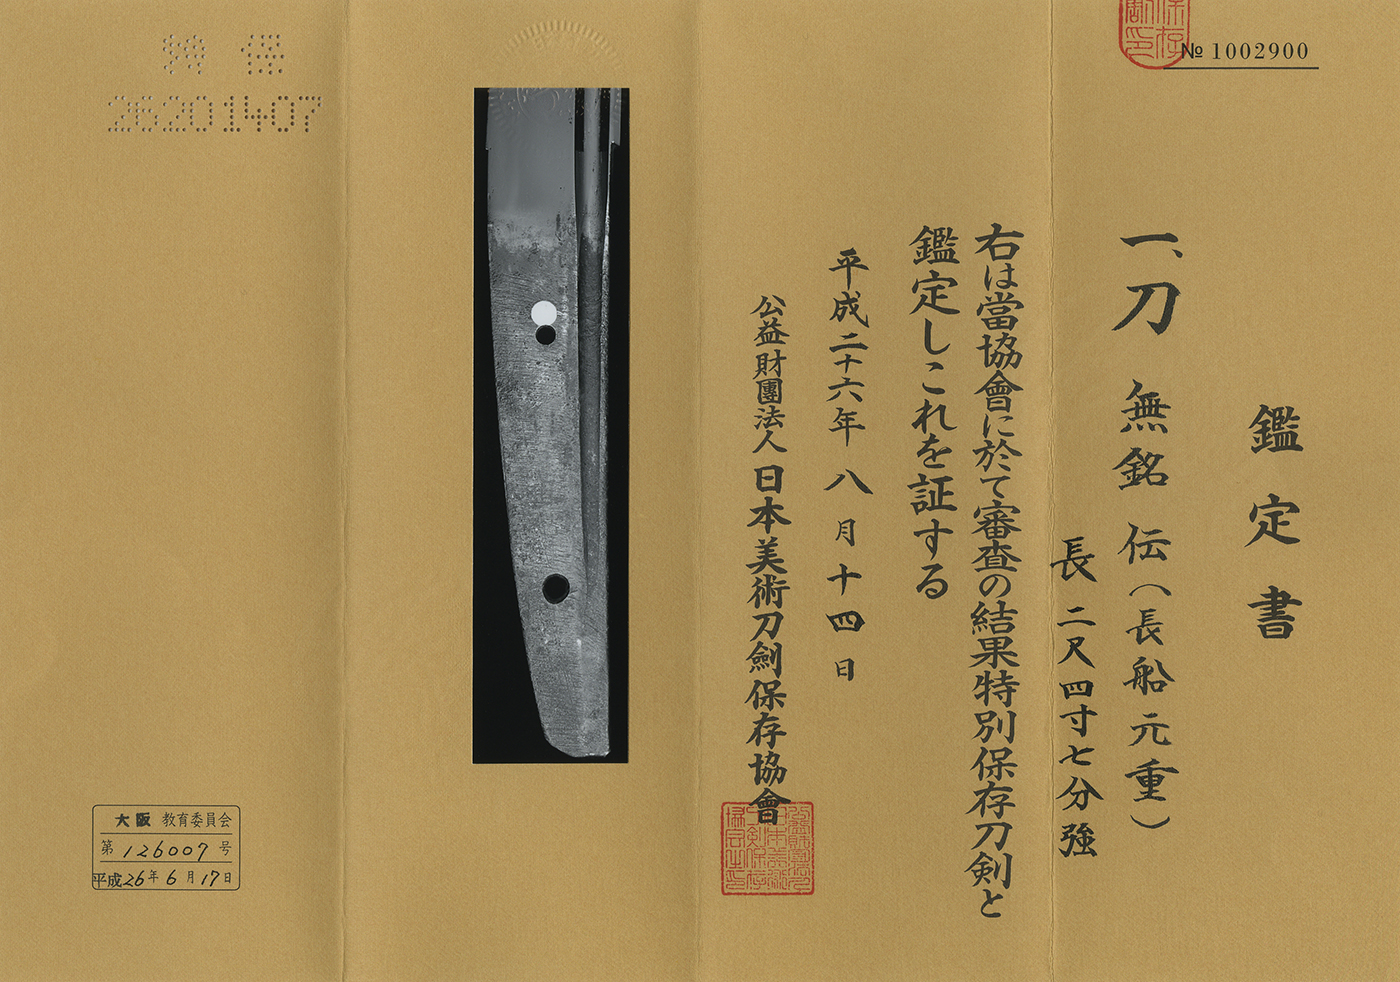 № 1002900
鑑定書
一、刀 無銘 伝(長船元重)
長 二尺四寸七分強
右は當協會に於て審査の結果特別保存刀剣と
鑑定しこれを証する
平成二十六年 八月十四日
公益財團法人 日本美術刀劍保存協會
特保
26201407
大阪 教育委員会
第 126007 号
平成26年6月17日